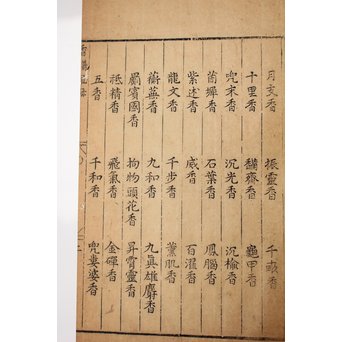 月支香 振靈香 千畝香
十里香 齊香 龜甲香
兜末香 沉光香 沉榆香
茵墀香 石葉香 鳳腦香
紫述香 威香 百濯香
龍文香 千步香 薰肌香
蘅蕪香 九和香 九真雄麝香
罽賓國香 拘物頭花香 昇霄靈香
祗精香 飛氣香 金磾香
五香 千和香 兜婁婆香